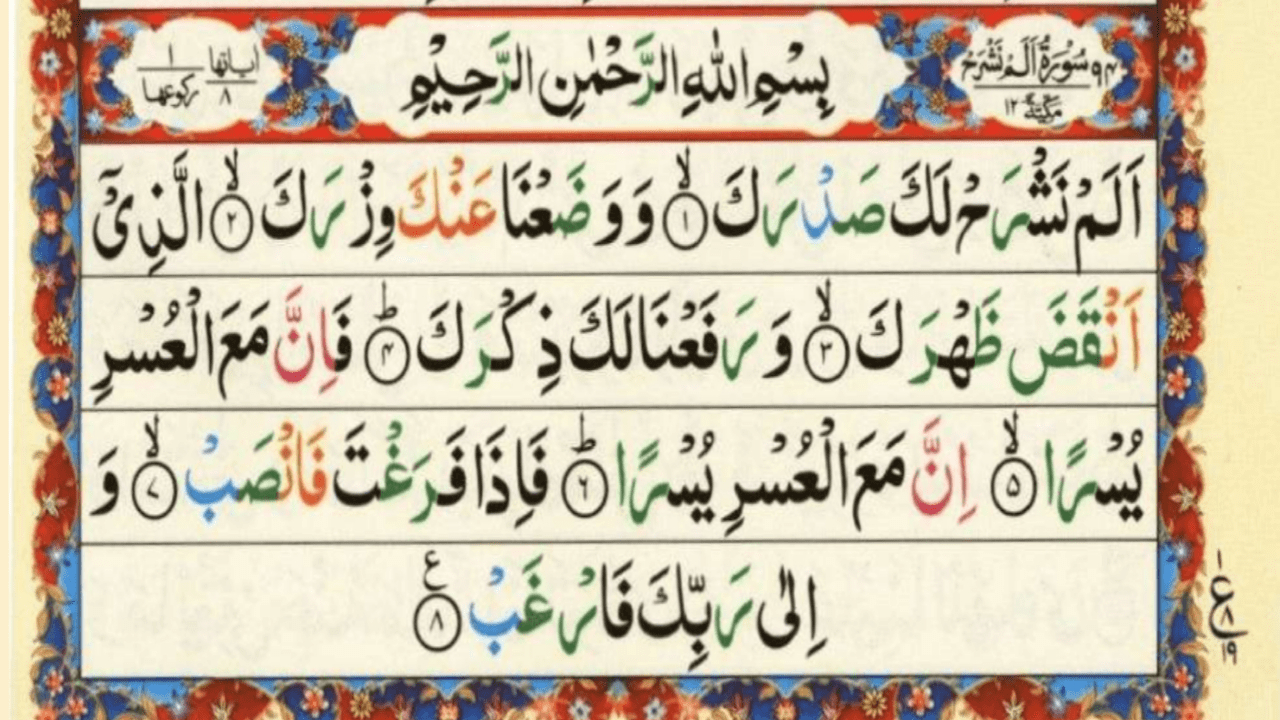 سُوْرَةُ اَلَمْ نَشْرَحْ ٩٤ مَكِّيَّةٌ ١٢
بِسْمِ اللّٰهِ الرَّحْمٰنِ الرَّحِيْمِ
اٰيَاتُهَا ٨ رُكُوْعُهَا ١
اَلَمْ نَشْرَحْ لَكَ صَدْرَكَ ۙ﴿١﴾ وَ وَضَعْنَا عَنْكَ وِزْرَكَ ۙ﴿٢﴾ الَّذِىْۤ
اَنْقَضَ ظَهْرَكَ ۙ﴿٣﴾ وَ رَفَعْنَا لَكَ ذِكْرَكَ ؕ﴿۴﴾ فَاِنَّ مَعَ الْعُسْرِ
يُسْرًا ۙ﴿۵﴾ اِنَّ مَعَ الْعُسْرِ يُسْرًا ؕ﴿۶﴾ فَاِذَا فَرَغْتَ فَانْصَبْ ۙ﴿۷﴾ وَ
اِلٰى رَبِّكَ فَارْغَبْ ﴿۸﴾ ع
١
ع
٨
١٩